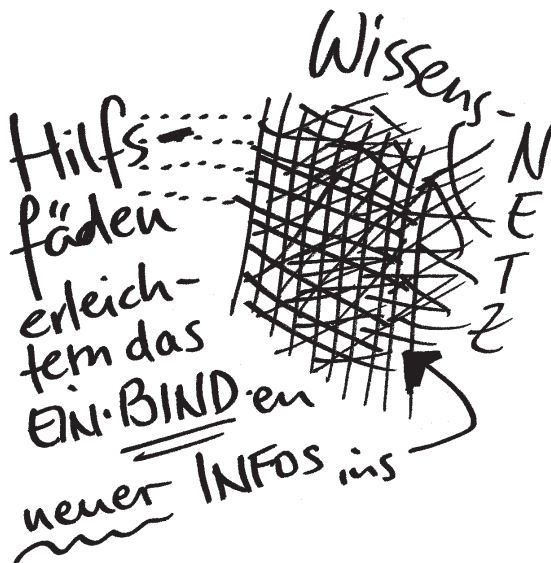 Wissens-
NETZ
Hilfs-
fäden
erleich-
tern das
EIN·BIND·en
neuer INFOS ins